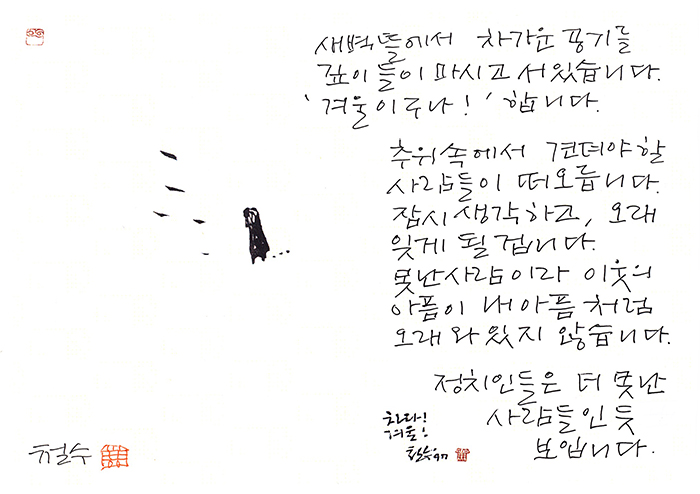 새벽뜰에서 차가운 공기를
깊이 들이마시고 서있습니다.
'겨울이구나!' 합니다.
추위속에서 견뎌야할
사람들이 떠오릅니다.
잠시 생각하고, 오래
잊게 될 겁니다.
못난사람이라 이웃의
아픔이 내아픔처럼
오래 와 있지 않습니다.
정치인들은 더 못난
사람들인듯
보입니다.
차다!
겨울!
철수97
철수